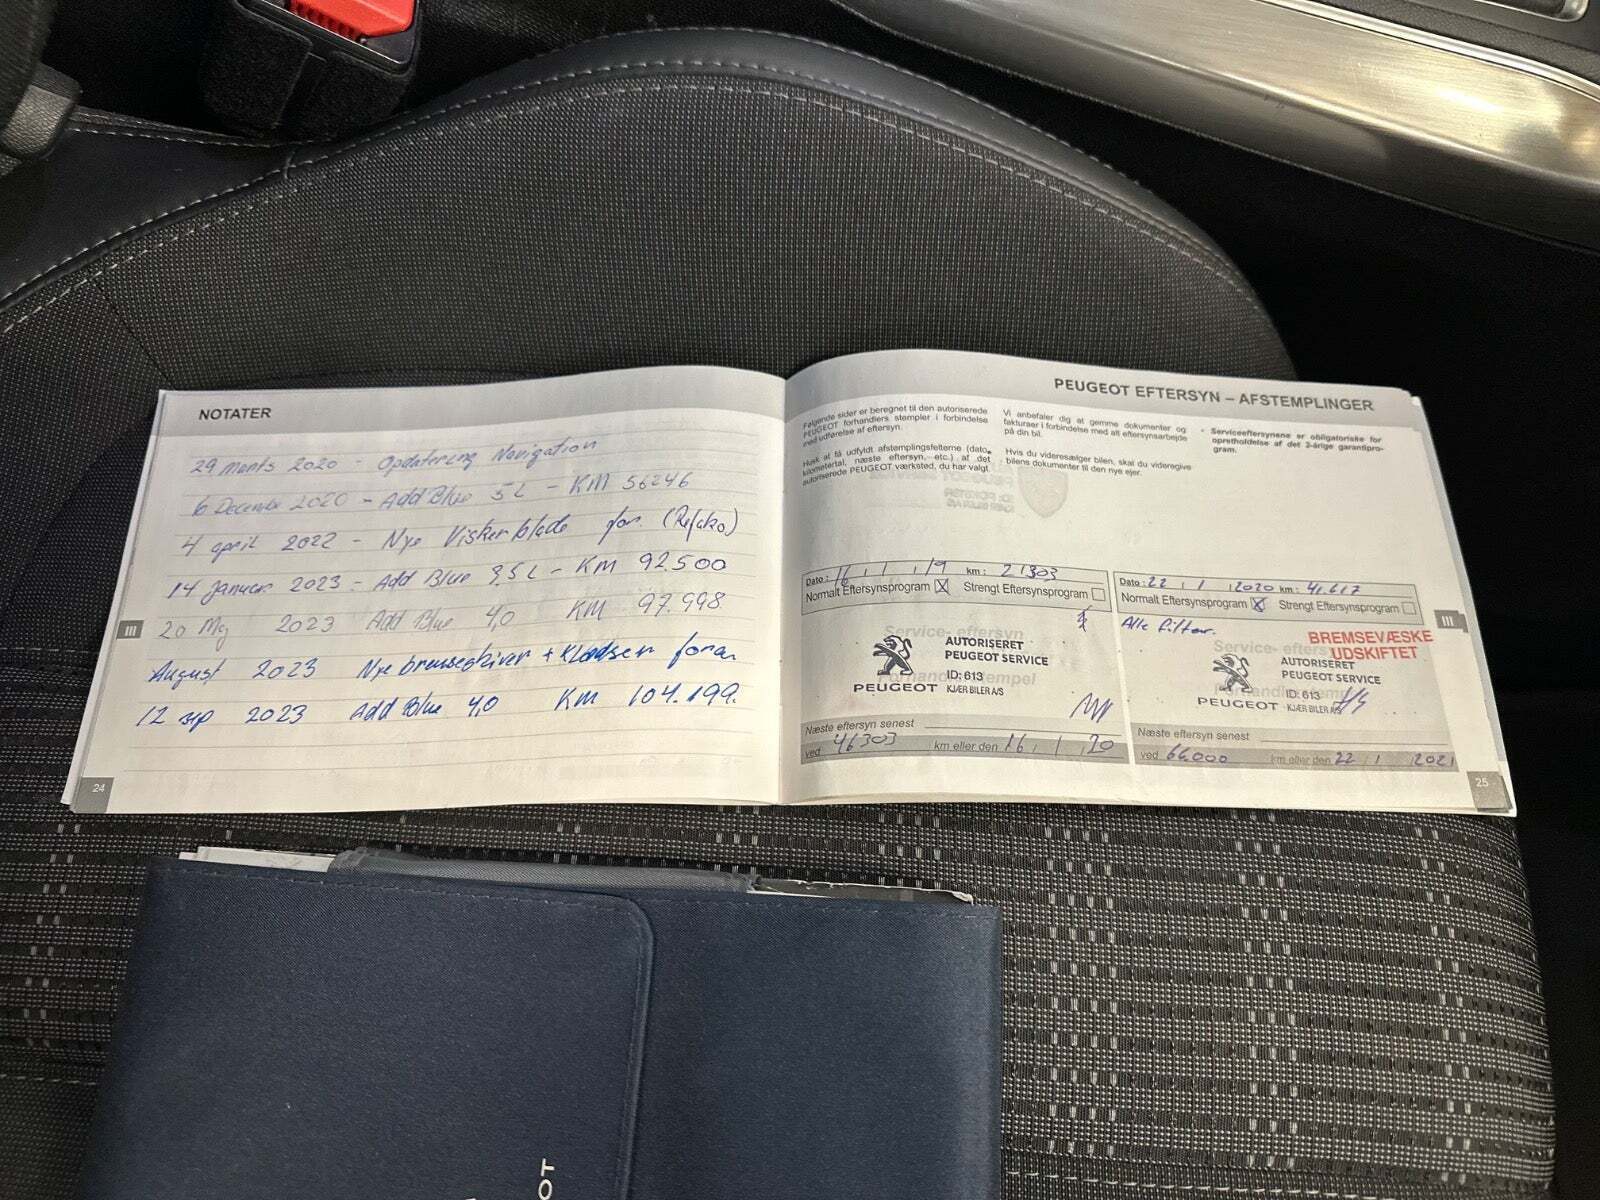 NOTATER
29 Marts 2020 Opdatering Navigation
6 December 2020 - Add Blue 5 L - KM 56246
4 april 2022 - Nye Viskerblade for. (Refako)
14 Januar 2023 - Add Blue 9,5 L - KM 92.500
20 Maj 2023 Add Blue 4,0 KM 97.998
August 2023 Nye bremseskiver + Klodser foran
12 sep 2023 Add Blue 4,0 KM 104.199.
III
24
PEUGEOT EFTERSYN – AFSTEMPLINGER
Følgende sider er beregnet til den autoriserede
PEUGEOT forhandlers stempler i forbindelse
med udførelse af eftersyn.
Husk at få udfyldt afstemplingsfelterne (dato,
kilometertal, næste eftersyn, etc.) af det
autoriserede PEUGEOT værksted, du har valgt.
Vi anbefaler dig at gemme dokumenter og
fakturaer i forbindelse med alt eftersynsarbejde
på din bil.
Hvis du videresælger bilen, skal du videregive
bilens dokumenter til den nye ejer.
- Serviceeftersynene er obligatoriske for
opretholdelse af det 2-årige garantipro-
gram.
Dato : 16 / 1 / 19 km : 21303
Normalt Eftersynsprogram X Strengt Eftersynsprogram
Service- eftersyn
AUTORISERET
PEUGEOT SERVICE
ID: 613
PEUGEOT KJÆR BILER A/S
Næste eftersyn senest
ved 46303 km eller den 16 / 1 / 20
Dato : 22 / 1 / 2020 km : 41.617
Normalt Eftersynsprogram X Strengt Eftersynsprogram
Alle filter.
BREMSEVÆSKE
UDSKIFTET
Service- eftersyn
AUTORISERET
PEUGEOT SERVICE
ID: 613
PEUGEOT KJÆR BILER A/S
Næste eftersyn senest
ved 66.000 km eller den 22 / 1 / 2021
III
25
OT